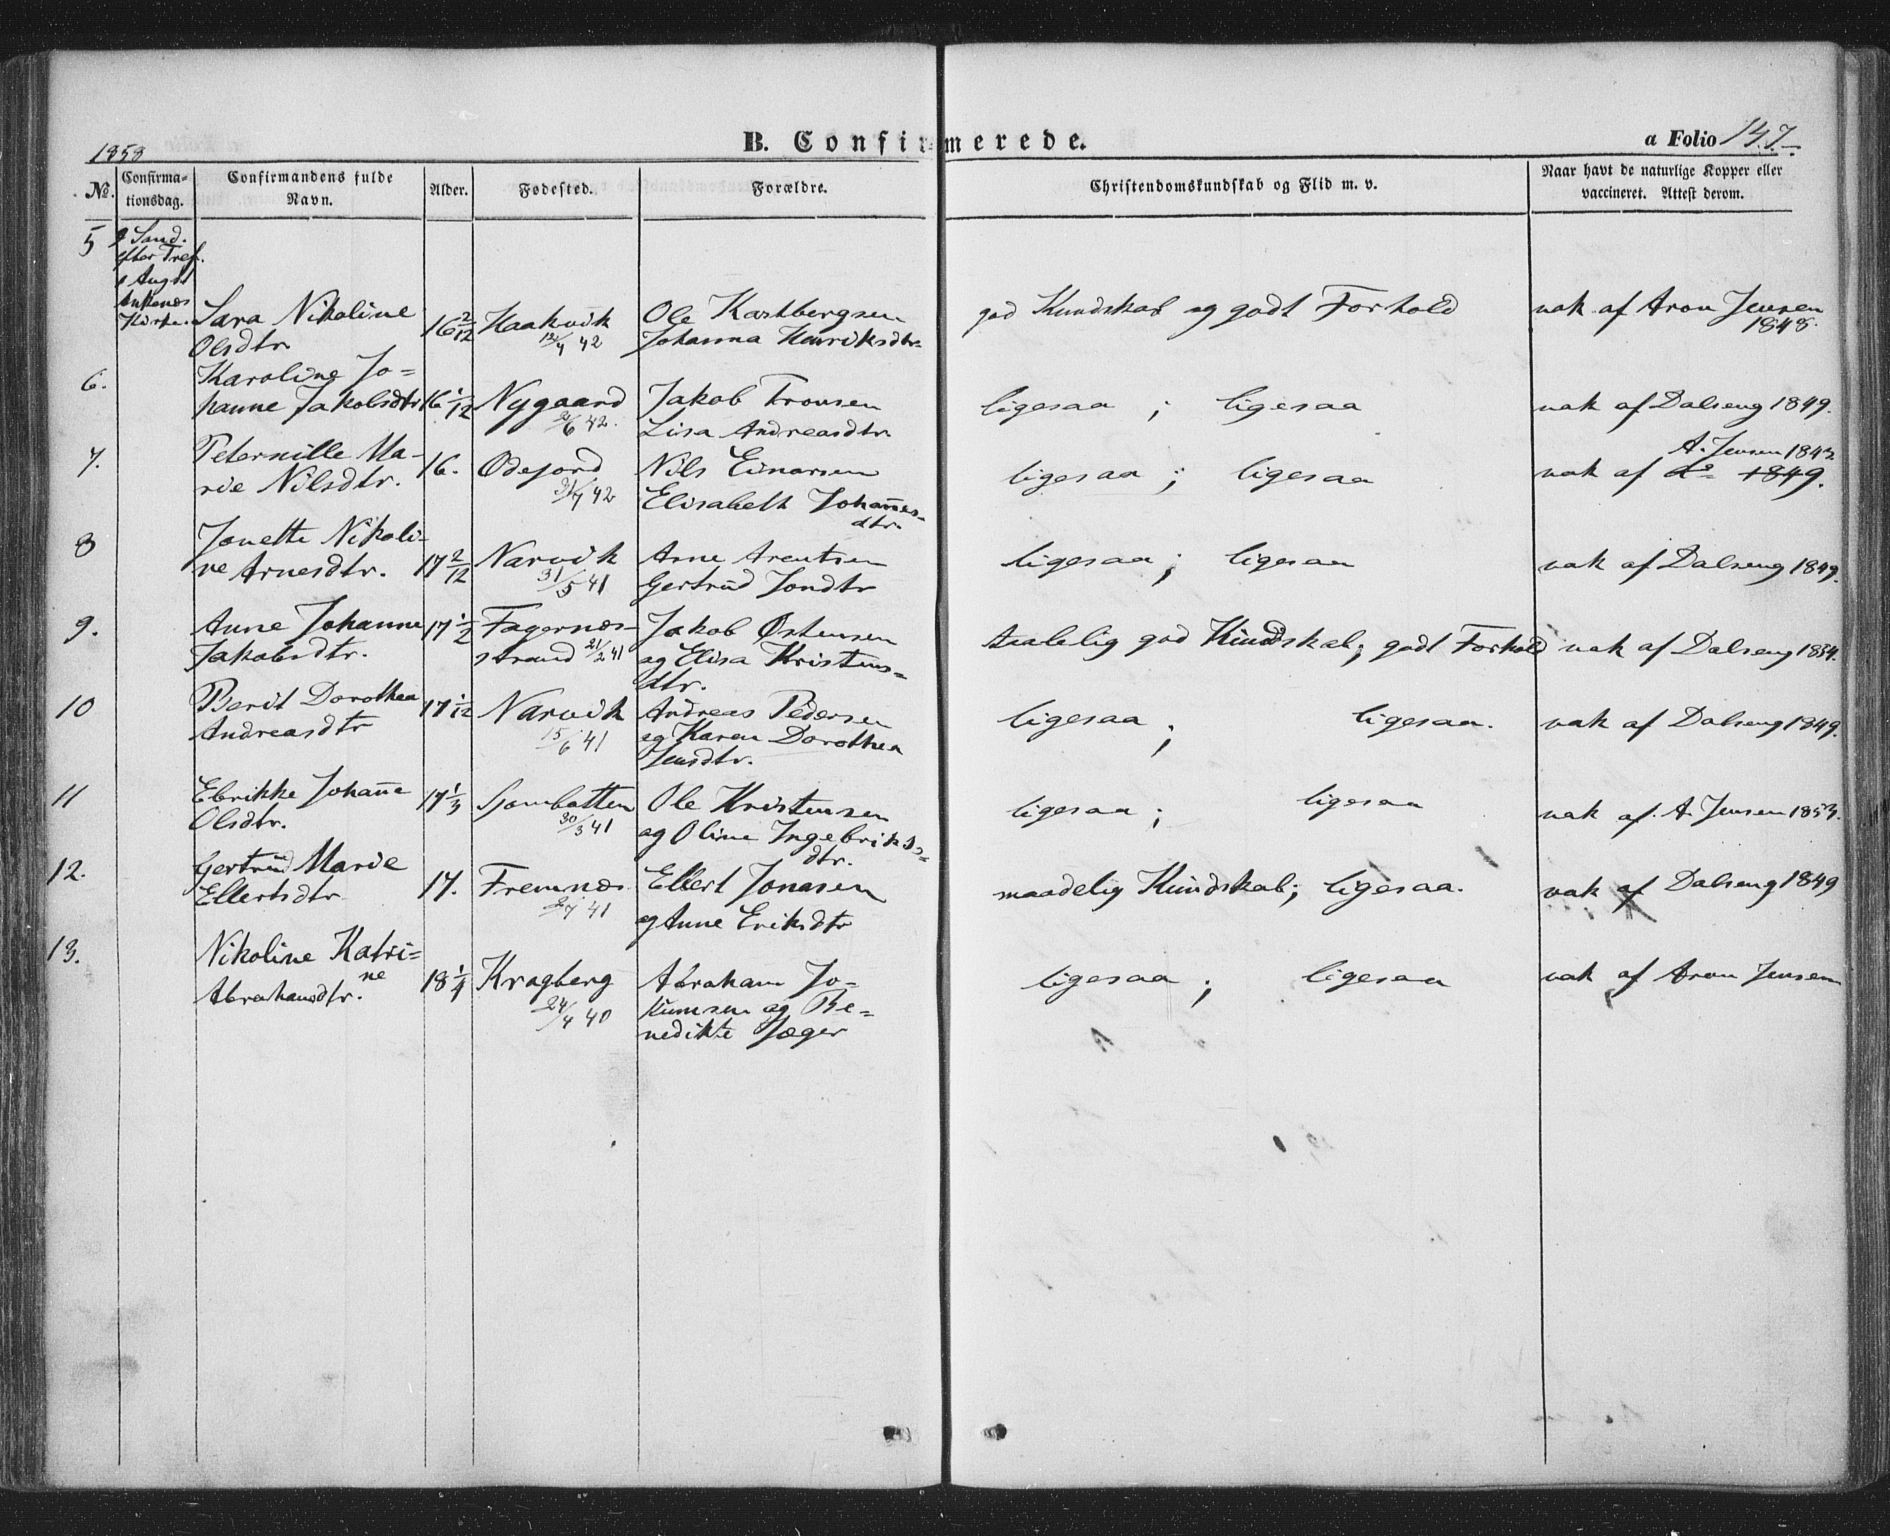 1858
B. Confirmerede.
a Folio 147
No.
Confirma-
tionsdag.
Confirmandens fulde
Navn.
Alder.
Fødested.
Forældre.
Christendomskundskab og Flid m. v.
Naar havt de naturlige Kopper eller
vaccineret. Attest derom.
5
Sönd.
efter Tref.
Augst
Ankenes
Kirke
Sara Nikoline
Olsdtr
16 2/12
Haakvik
42
Ole Kastbergsen
Johanna Henriksdtr
god Kundskab og godt Forhold
vak af Aron Jensen
1848.
6.
Karoline Jo-
hanne Jakobsdtr
16 1/12
Nygaard
6 42.
Jakob Tronsen
Lisa Andreasdtr
ligesaa ; ligesaa
vak af Dalseng 1849.
7.
Peternille Ma-
rie Nilsdtr.
16.
Odejord
31/7 42
Nils Einarsen
Elisabeth Johannes-
dtr.
ligesaa ; ligesaa
A. Jensen 1842
vak af do 1849.
8
Jonette Nikoli-
ne Arnesdtr.
17 2/12
Narvik
31/5 41
Arne Arentsen
Gertrud Jondtr
ligesaa ; ligesaa
vak af Dalseng 1849.
9.
Anne Johanne
Jakobsdtr.
17 1/2
Fagernæs-
strand 21/2 41
Jakob Østensen
og Elisa Kristens-
dtr.
taalelig god Kundskab; godt Forhold
vak af Dalseng 1854.
10
Berit Dorothea
Andreasdtr
17 1/12
Narvik
15/6 41
Andreas Pedersen
og Karen Dorothea
Jensdtr.
ligesaa ; ligesaa.
vak af Dalseng 1849.
11
Ebrikke Johanne
Olsdtr.
17 1/3
Sjombotten
30/3 41
Ole Kristensen
og Oline Ingebrikts-
dtr.
ligesaa ; ligesaa
vak af A. Jensen 1853.
12.
Gertrud Marie
Ellertsdtr
17.
Fremnæs
7 41
Ellert Jonasen
og Anne Eriksdtr
maadelig Kundskab; ligesaa.
vak af Dalseng 1849
13.
Nikoline Katri-
ne
Abrahamsdtr.
18 1/4
Kragberg
24/4 40
Abraham Jo-
kumsen og Be-
nedikte Jæger
ligesaa ; ligesaa
vak af Aron Jensen